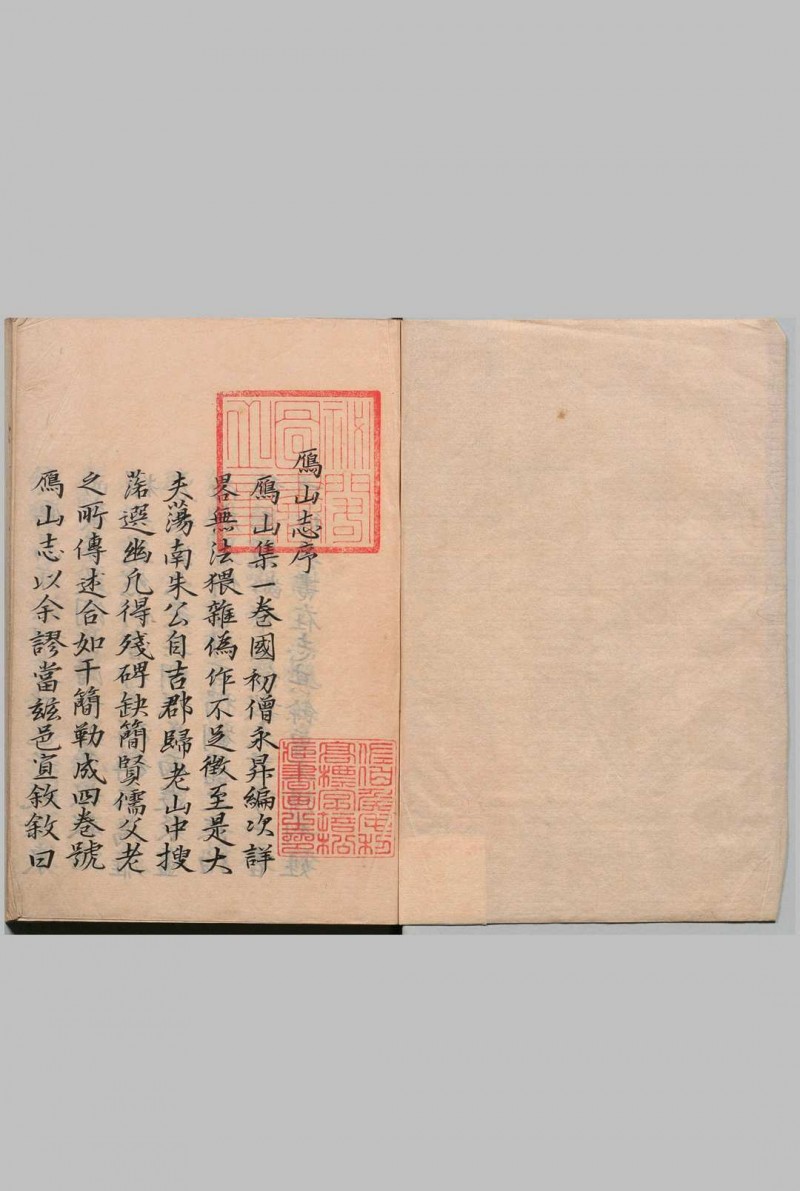 鴈山志序
鴈山集一卷國初僧永昇編次詳
畧無法猥雜偽作不足徵至是大
夫蕩南朱公自吉郡歸老山中搜
落選幽凡得殘碑缺簡賢儒父老
之所傳述合如干簡勒成四卷號
鴈山志以余謬當玆邑宜敘敘曰